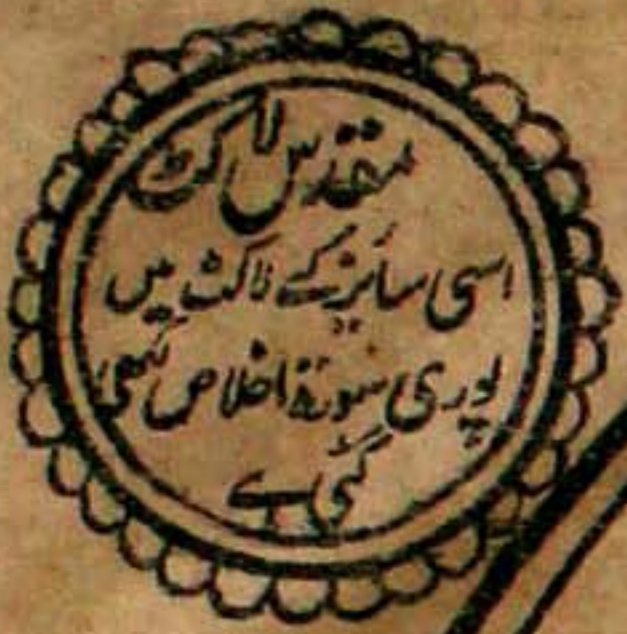 مقدس لاکٹ
اسی سائز کے لاکٹ میں
پوری سورۃ اخلاص لکھی
گئی ہے